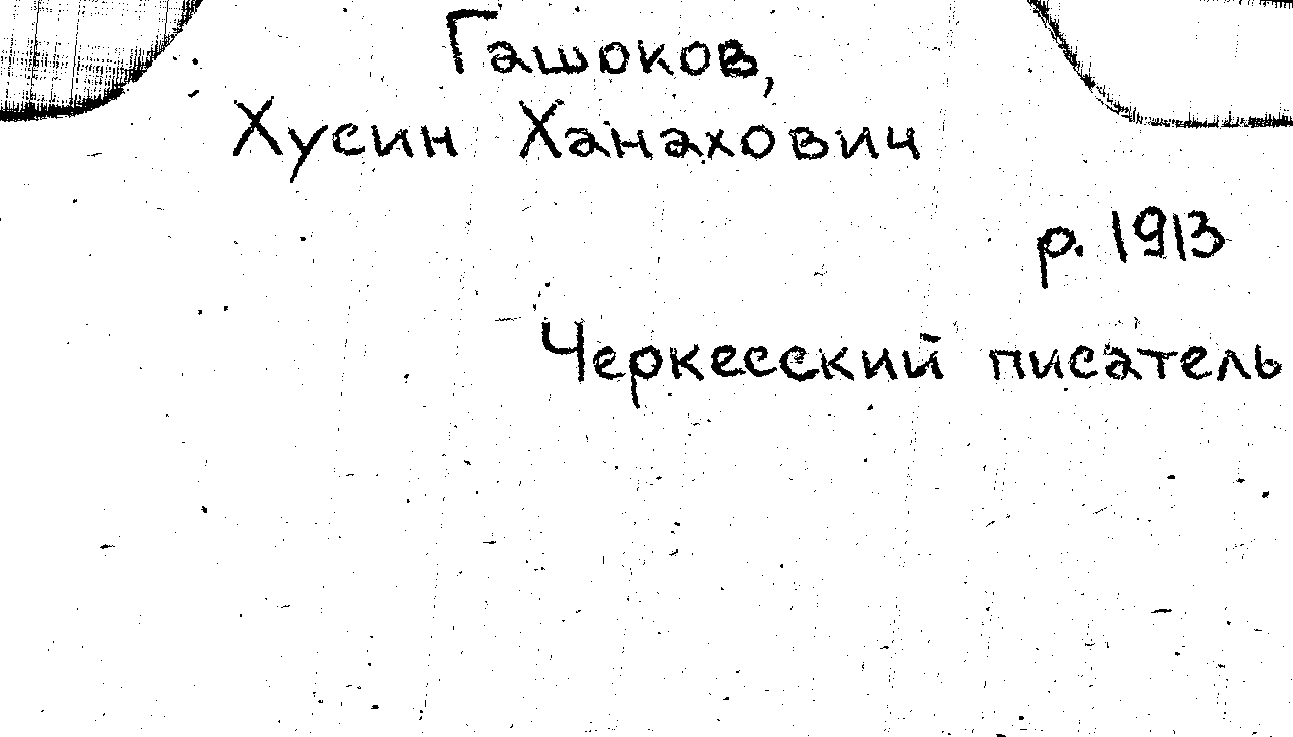 Гашоков,
Хусин Ханахович
р. 1913
Черкесский писатель